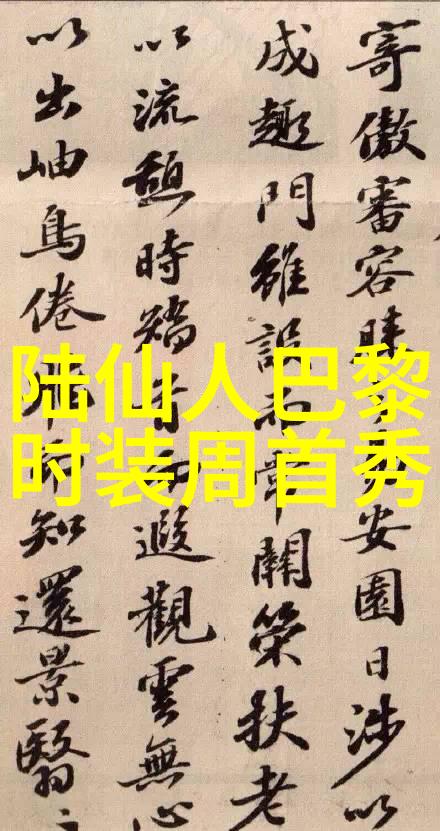 陆仙人巴黎
时装周首秀
寄傲審容膝安園日涉以
成趣門雖設而常關策扶老
以流憩時矯首而遐觀雲無心
以出岫鳥倦飛而知還景翳